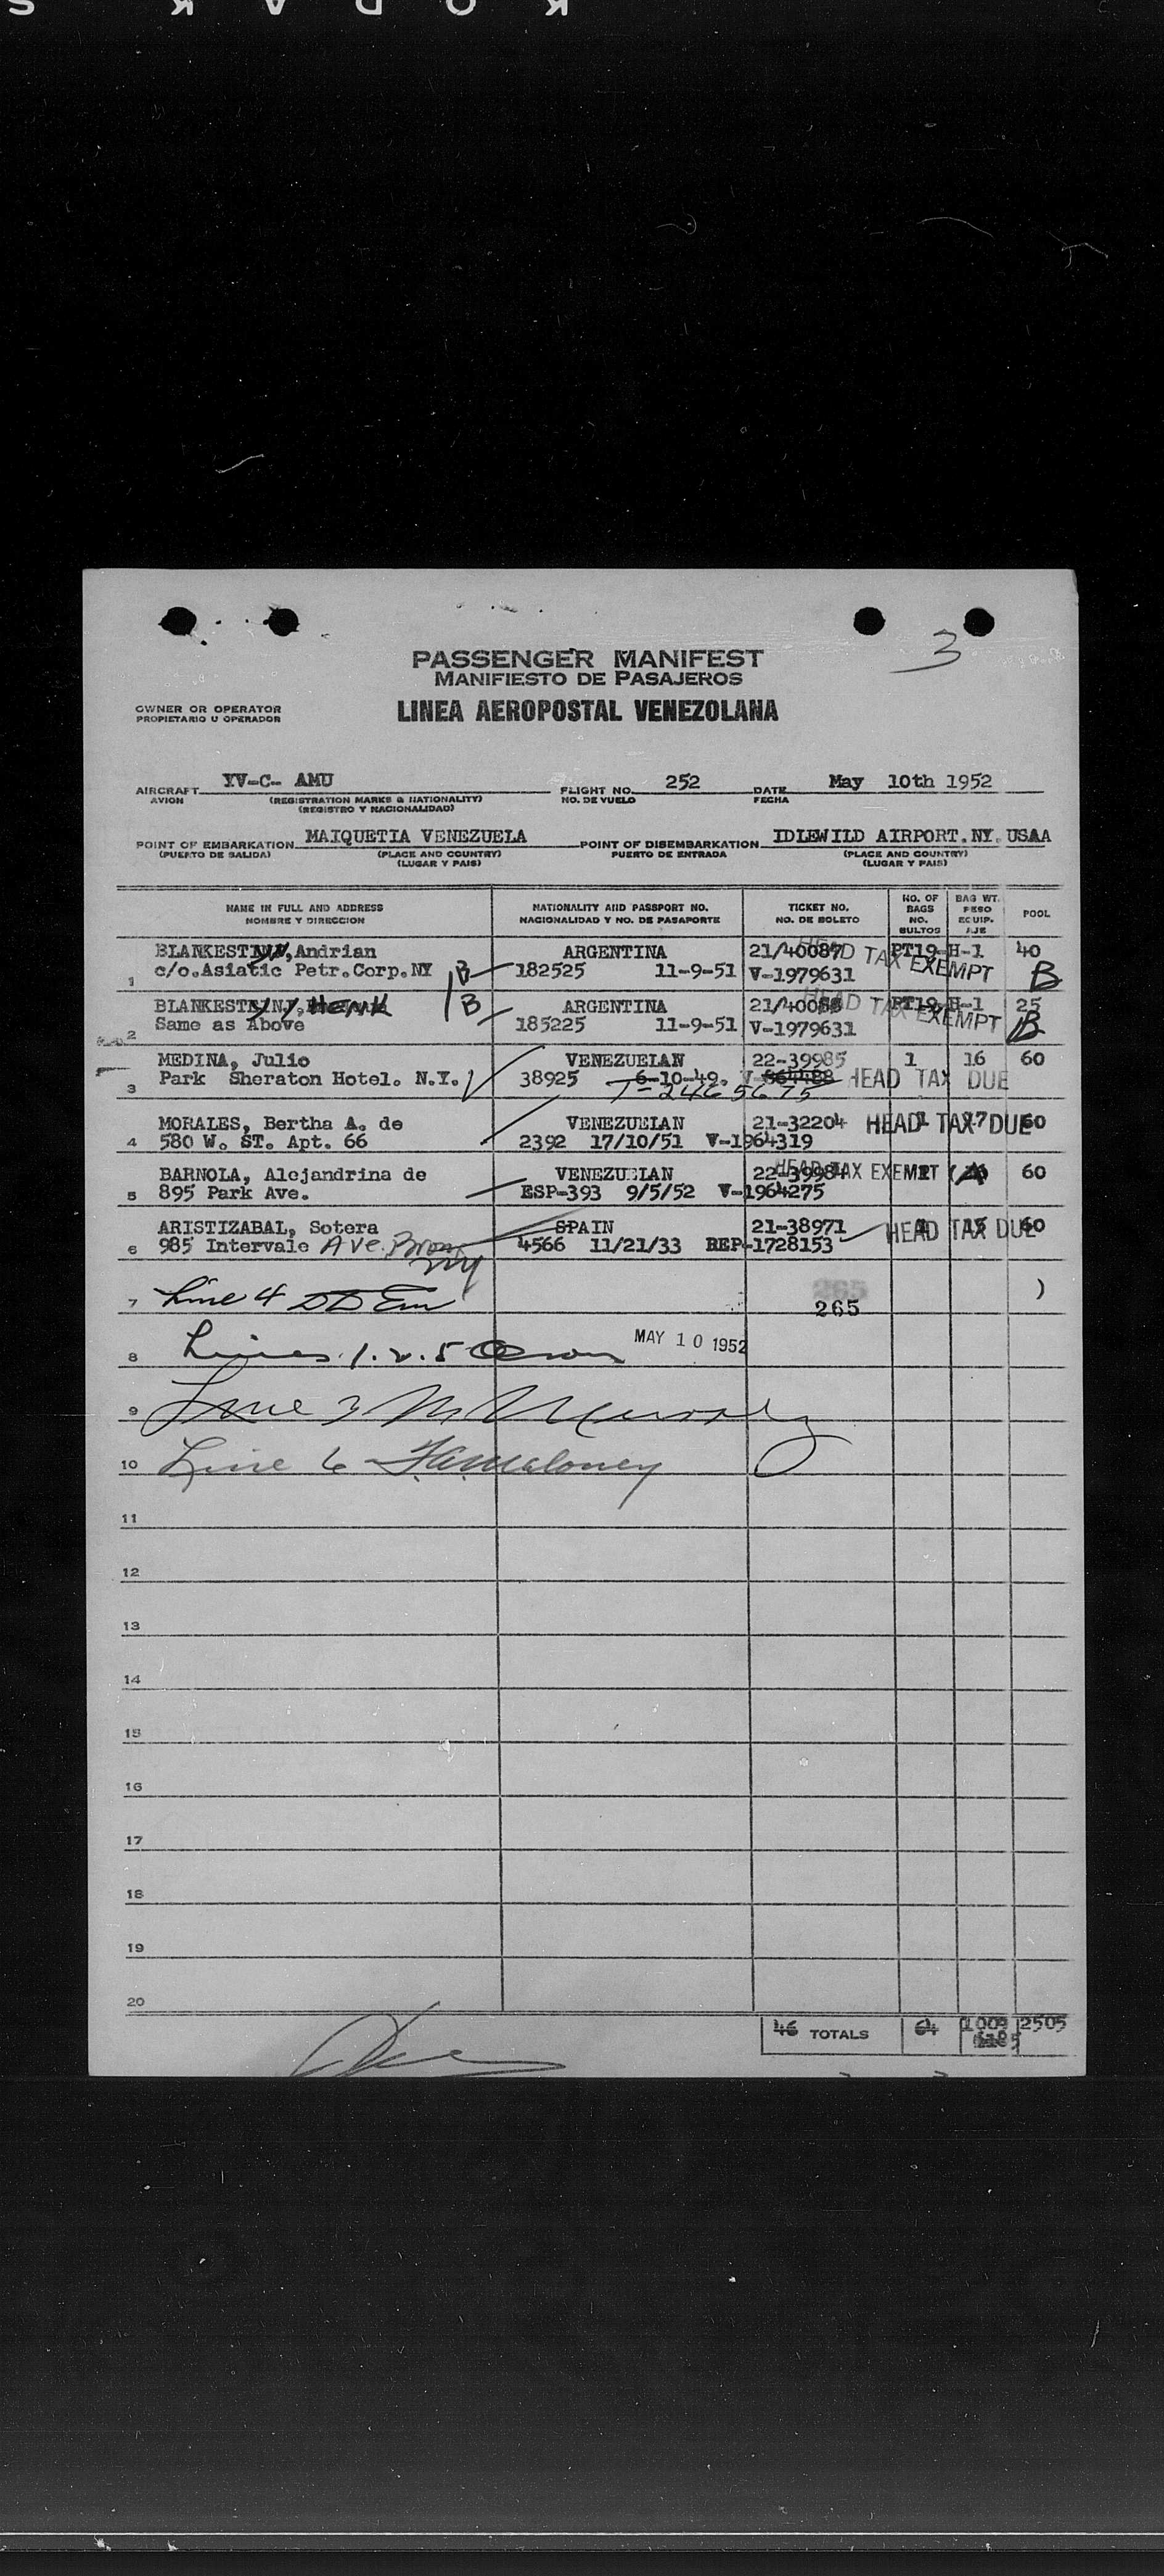 KODAK S
3
PASSENGER MANIFEST
MANIFIESTO DE PASAJEROS
OWNER OR OPERATOR
PROPIETARIO U OPERADOR
LINEA AEROPOSTAL VENEZOLANA
AIRCRAFT YV-C- AMU FLIGHT NO. 252 DATE May 10th 1952
AVION (REGISTRATION MARKS & NATIONALITY) NO. DE VUELO FECHA
(REGISTRO Y NACIONALIDAD)
POINT OF EMBARKATION MAIQUETIA VENEZUELA POINT OF DISEMBARKATION IDLEWILD AIRPORT.NY. USAA
(PUERTO DE SALIDA) (PLACE AND COUNTRY) PUERTO DE ENTRADA (PLACE AND COUNTRY)
(LUGAR Y PAIS) (LUGAR Y PAIS)
NAME IN FULL AND ADDRESS NATIONALITY AND PASSPORT NO. TICKET NO. NO. OF BAGS BAG WT. POOL
NOMBRE Y DIRECCION NACIONALIDAD Y NO. DE PASAPORTE NO. DE BOLETO NO. BULTOS PESO EQUIP-AJE
BLANKEST , Andrian ARGENTINA 21/40087 HEAD TAX EXEMPT PT19-H-1 40
1 c/o.Asiatic Petr.Corp.NY B 182525 11-9-51 V-1979631 B
BLANKEST Henk ARGENTINA 21/40088 HEAD TAX EXEMPT PT19-H-1 25
2 Same as Above B 185225 11-9-51 V-1979631 B
MEDINA, Julio VENEZUELAN 22-39985 1 16 60
3 Park Sheraton Hotel. N.Y. 38925 6-10-49. V-864488 HEAD TAX DUE
T-2465675
MORALES, Bertha A. de VENEZUELAN 21-32204 HEAD TAX DUE 1 17 60
4 580 W. ST. Apt. 66 2392 17/10/51 V-1964319
BARNOLA, Alejandrina de VENEZUELAN 22-39984 HEAD TAX EXEMPT 60
5 895 Park Ave. ESP-393 9/5/52 V-1964275
ARISTIZABAL, Sotera SPAIN 21-38971 HEAD TAX DUE 1 15 60
6 985 Intervale Ave. Bronx 4566 11/21/33 REP-1728153
NY
7 Line 4 265
265
8 Lines 1. 2. 5 MAY 10 1952
9 Line 3
10 Line 6 F.A. Maloney
11
12
13
14
15
16
17
18
19
20
46 TOTALS 64 1009 2505